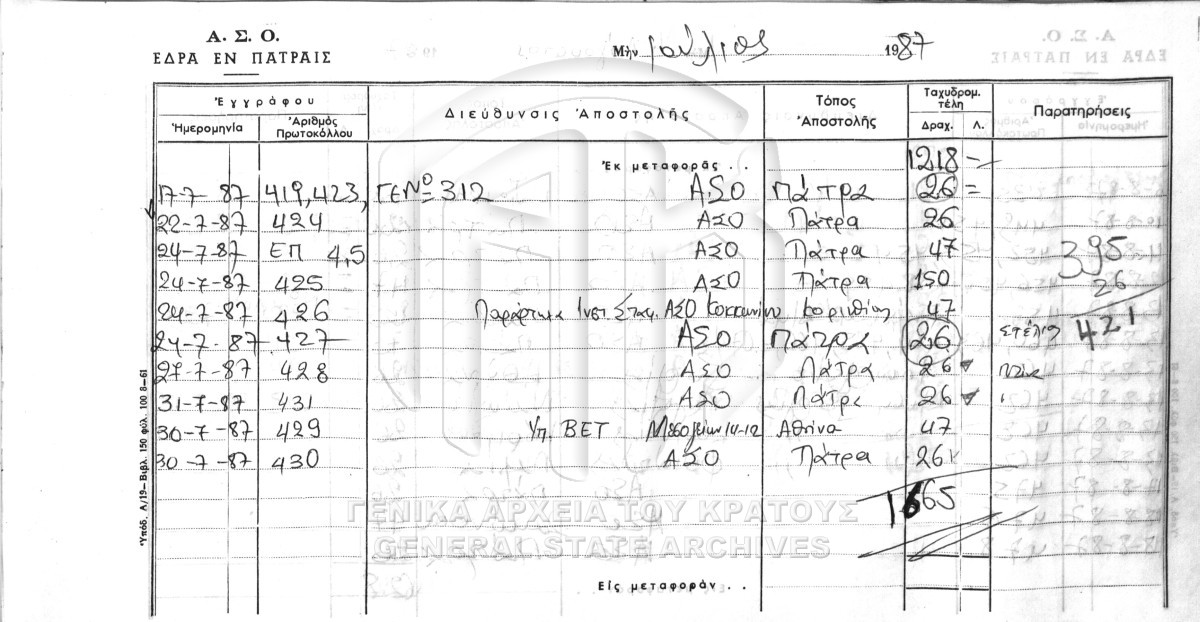 Α. Σ. Ο.
ΕΔΡΑ ΕΝ ΠΑΤΡΑΙΣ
Μὴν Ιούλιος 1987
Ἐγγράφου Διεύθυνσις Ἀποστολῆς Τόπος Ἀποστολῆς Ταχυδρομ. τέλη Παρατηρήσεις
Ἡμερομηνία Ἀριθμὸς Πρωτοκόλλου Δραχ. Λ.
Ἐκ μεταφορᾶς . . 1218 –
17-7-87 419, 423, ΓΕΝο 312 ΑΣΟ Πάτρα 26 =
22-7-87 424 ΑΣΟ Πάτρα 26
24-7-87 ΕΠ 4,5 ΑΣΟ Πάτρα 47 395
24-7-87 425 ΑΣΟ Πάτρα 150 26
24-7-87 426 Παράρτημα Ινστ. Σταφ. ΑΣΟ Κορινθίας 47
24-7-87 427 ΑΣΟ Πάτρα 26 421
27-7-87 428 ΑΣΟ Πάτρα 26
31-7-87 431 ΑΣΟ Πάτρα 26
30-7-87 429 Υπ. ΒΕΤ Μεσογείων 14-12 Αθήνα 47
30-7-87 430 ΑΣΟ Πάτρα 26
1665
Εἰς μεταφοράν . .
Ὑπόδ. Α/19–Βιβλ. 150 φύλ. 100 8–61
ΓΕΝΙΚΑ ΑΡΧΕΙΑ ΤΟΥ ΚΡΑΤΟΥΣ
GENERAL STATE ARCHIVES